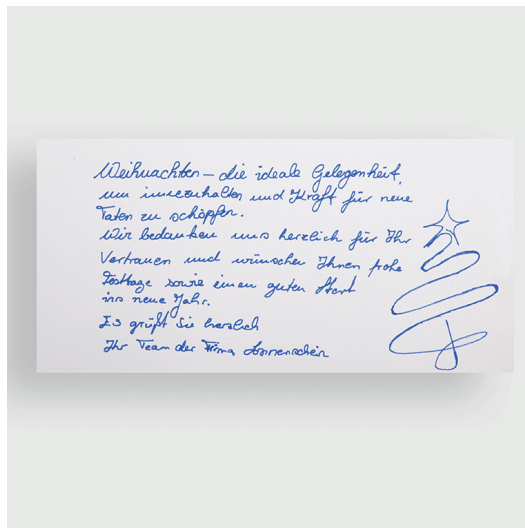 Weihnachten – die ideale Gelegenheit,
um innezuhalten und Kraft für neue
Taten zu schöpfen.
Wir bedanken uns herzlich für Ihr
Vertrauen und wünschen Ihnen frohe
Festtage sowie einen guten Start
ins neue Jahr.
Es grüßt Sie herzlich
Ihr Team der Firma Sonnenschein